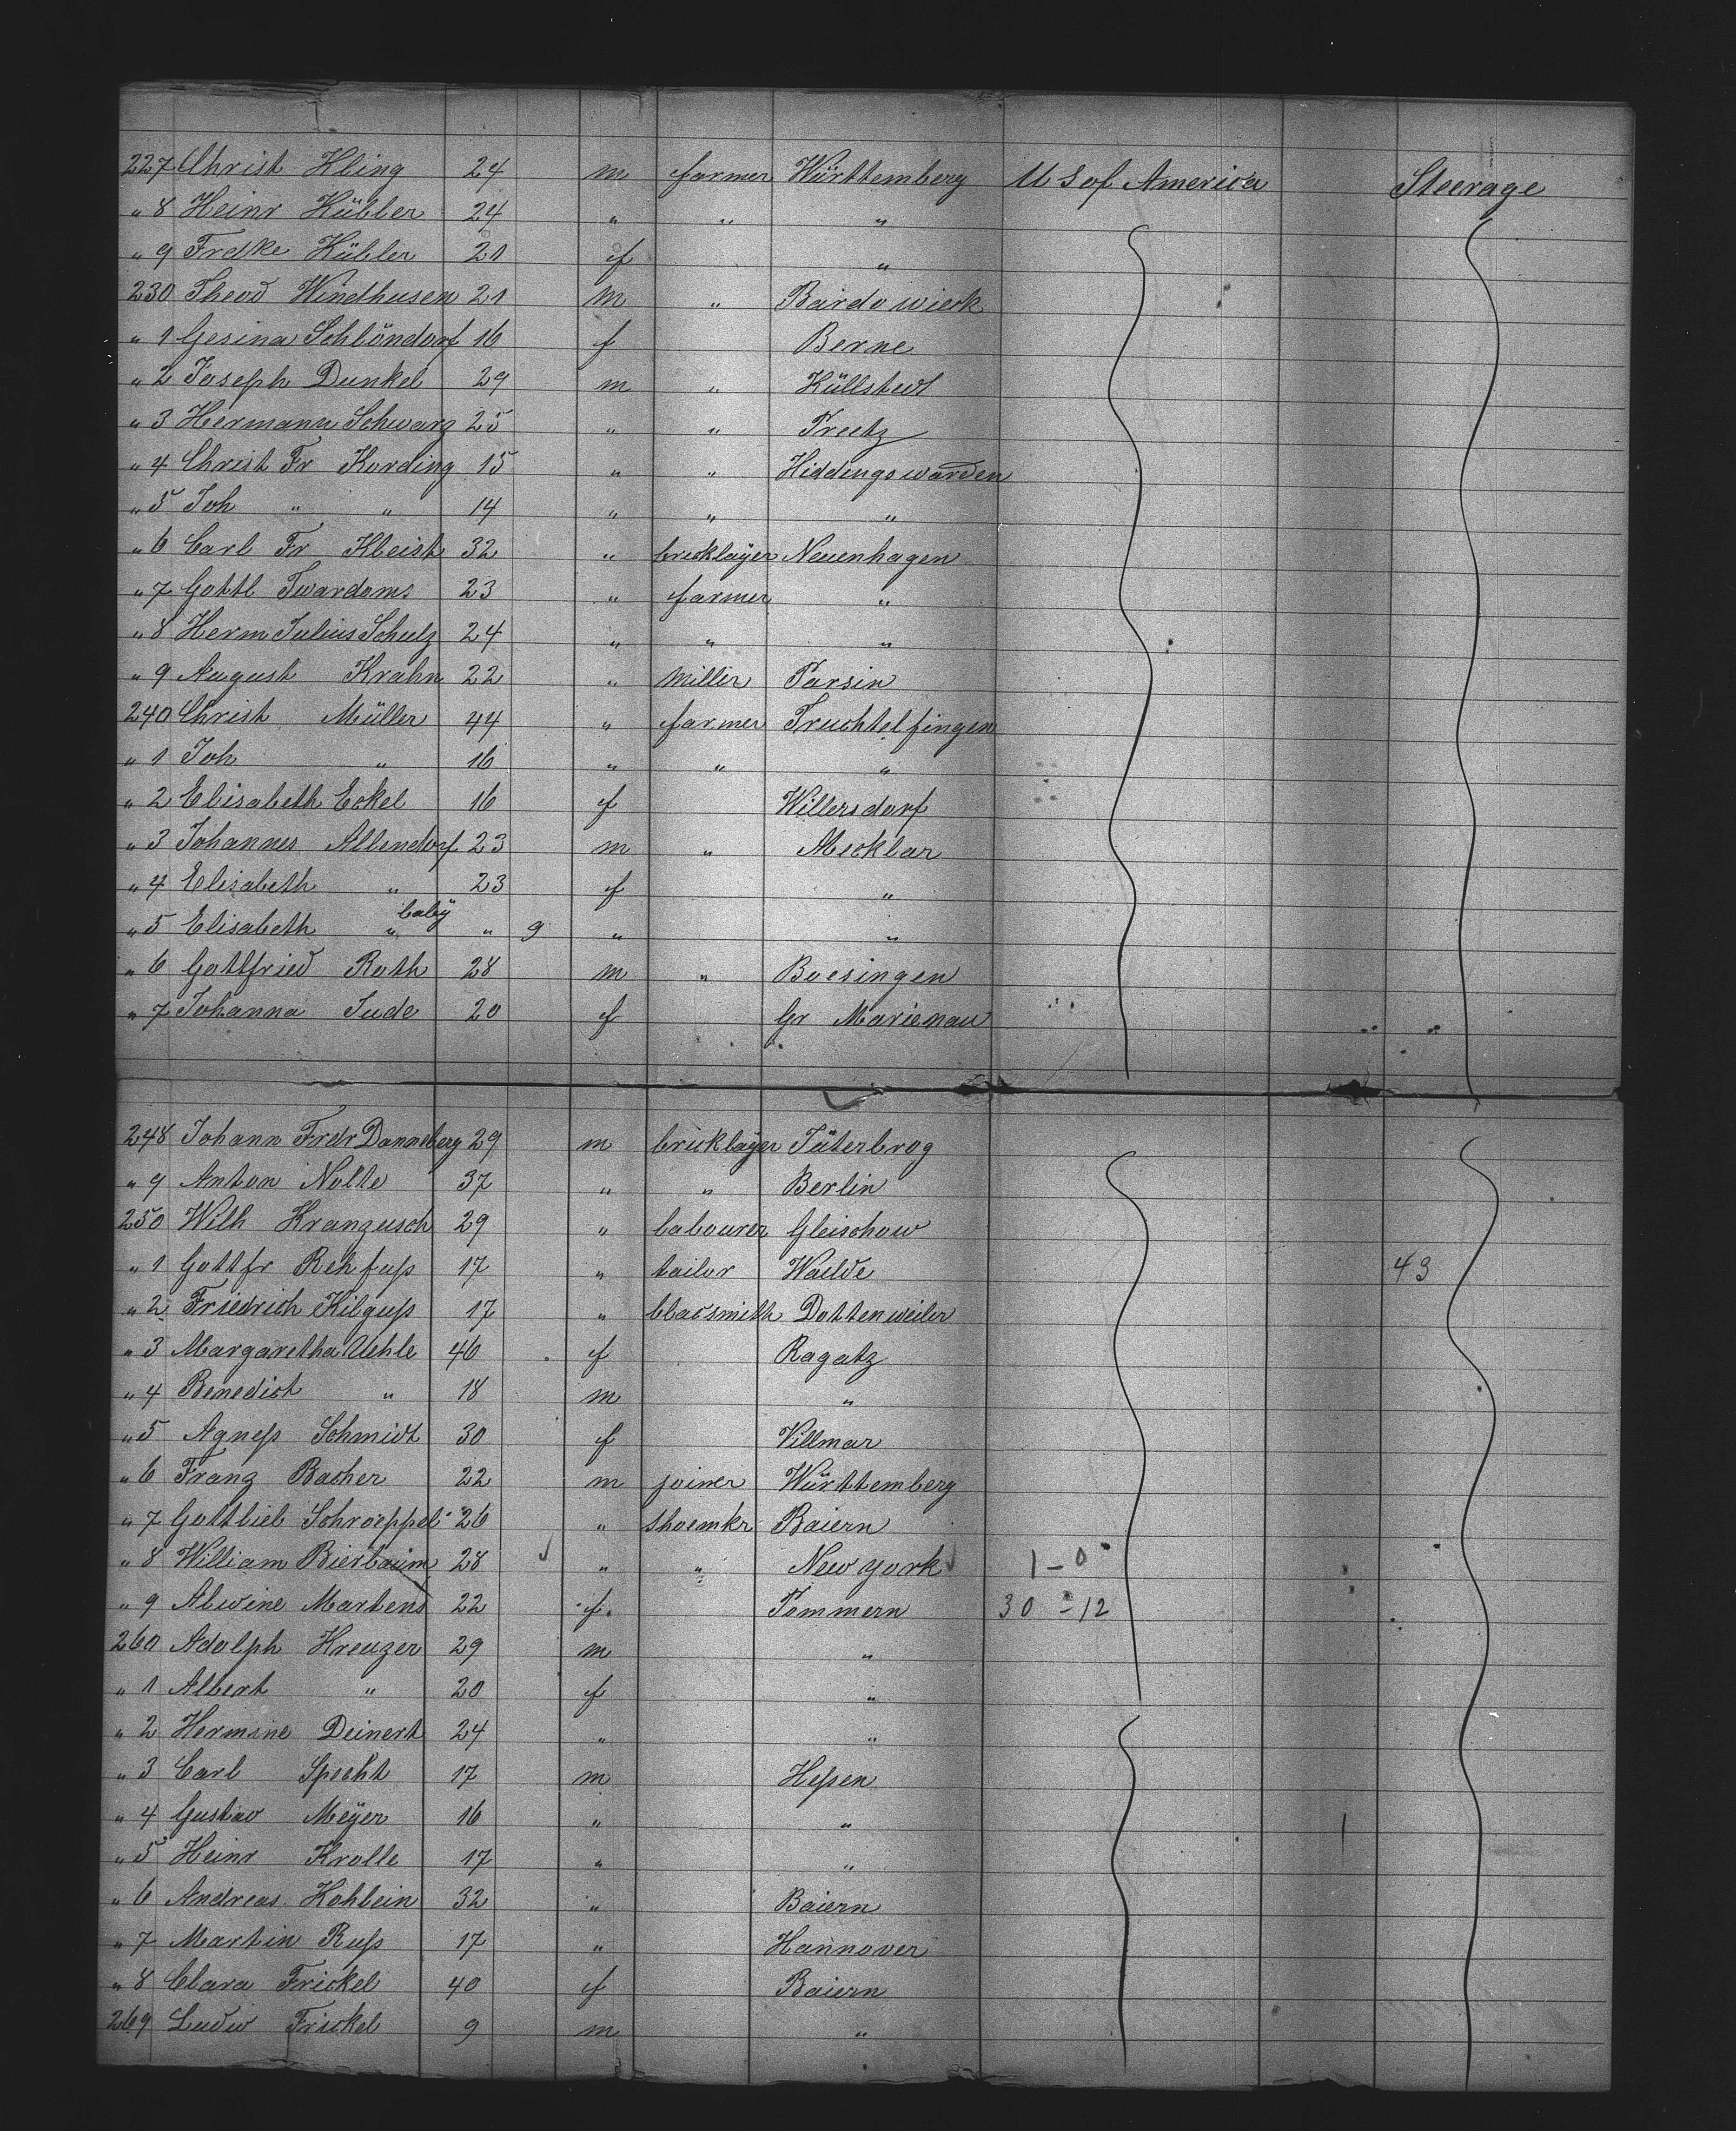 227 Christ Kling 24 m farmer Württemberg U S of America Steerage
" 8 Heinr Kübler 24 " " "
" 9 Frdke Kübler 21 f "
230 Theod Windhusen 21 m " Bardowieck
" 1 Gesina Schlöndorf 16 f Berne
" 2 Joseph Dunkel 29 m " Küllstedt
" 3 Hermann Schwarz 25 " " Preetz
" 4 Christ Fr Kording 15 " " Hiddingswarden
" 5 Joh " " 14 " " "
" 6 Carl Fr Kleist 32 " bricklayer Neuenhagen
" 7 Gottl Twardoms 23 " farmer "
" 8 Herm Julius Schulz 24 " " "
" 9 August Krahn 22 " miller Parsin
240 Christ Müller 44 " farmer Truchtelfingen
" 1 Joh " 16 " " "
" 2 Elisabeth Eckel 16 f Willersdorf
" 3 Johannes Allendorf 23 m " Mecklar
" 4 Elisabeth " 23 f "
" 5 Elisabeth " baby " 9 " "
" 6 Gottfried Roth 28 m " Boesingen
" 7 Johanna Jude 20 f Gr Marienau
248 Johann Frdr Danneberg 29 m bricklayer Jüterbrog
" 9 Anton Nolte 37 " " Berlin
250 Wilh Krangusch 29 " labourer Gleischow
" 1 Gottfr Rehfuß 17 " tailor Waelde 43
" 2 Friedrich Kilguß 17 " blacsmith Dottenweiler
" 3 Margaretha Uehle 46 f Ragatz
" 4 Benedict " 18 m "
" 5 Agneß Schmidt 30 f Villmar
" 6 Franz Bacher 22 m joiner Württemberg
" 7 Gottlieb Schroeppel 26 " shoemkr Baiern
" 8 William Bierbaum 28 " " New york 1 - 0
" 9 Alwine Martens 22 f Pommern 30 - 12
260 Adolph Kreuzer 29 m "
" 1 Albert " 20 f "
" 2 Hermine Deinert 24 " "
" 3 Carl Specht 17 m Heßen
" 4 Gustav Meÿer 16 " "
" 5 Heinr Krolle 17 " "
" 6 Andreas Kohlein 32 " Baiern
" 7 Martin Ruß 17 " Hannover
" 8 Clara Frickel 40 f Baiern
269 Ludw Frickel 9 m "